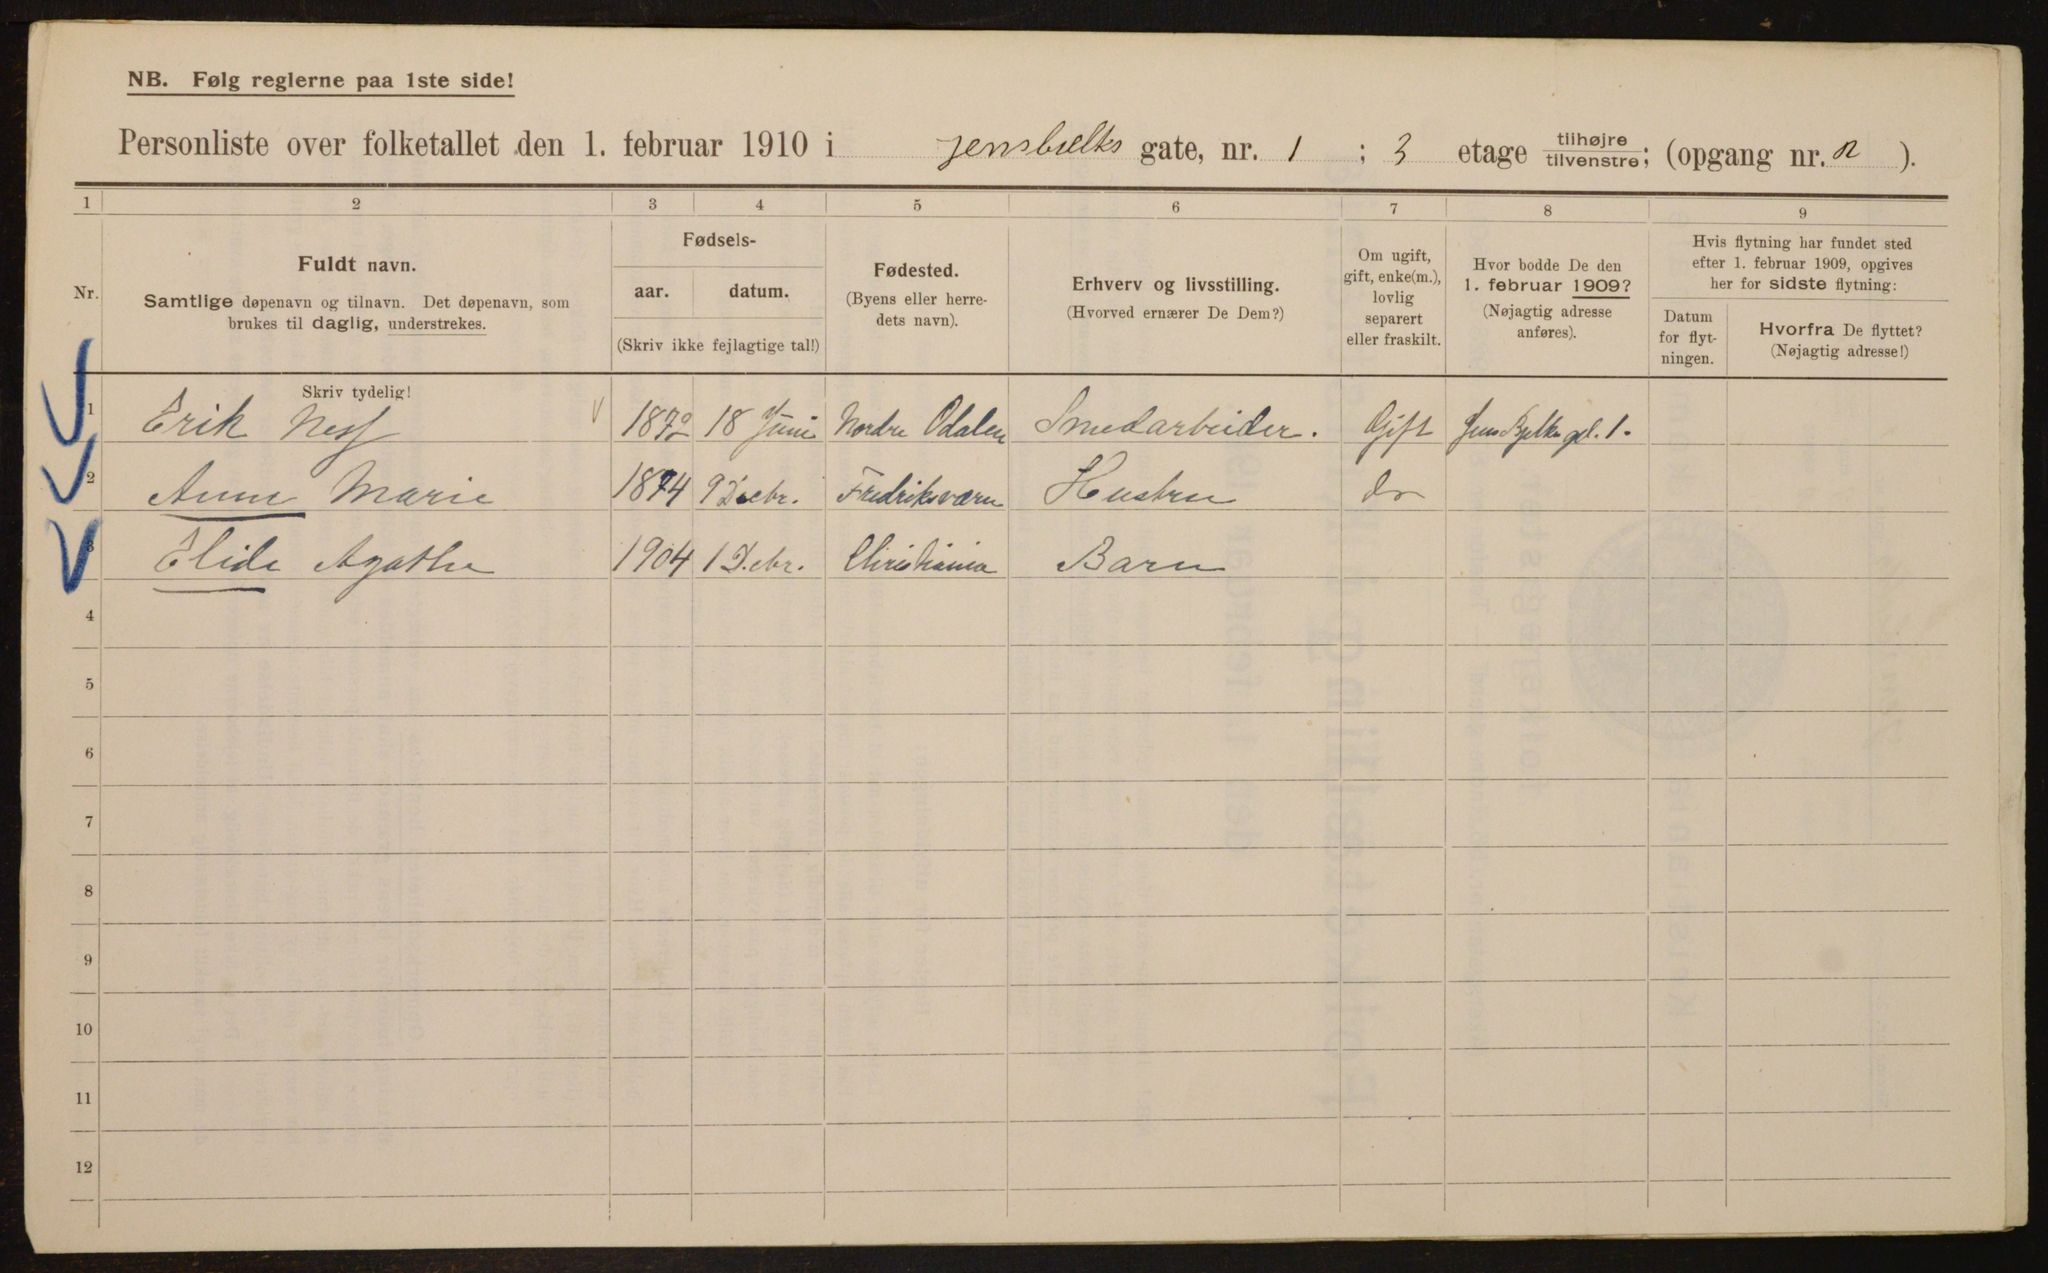 NB. Følg reglerne paa 1ste side!
Personliste over folketallet den 1. februar 1910 i Jensbielks gate, nr. 1 ; 3 etage tilhøjre tilvenstre; (opgang nr. 2 ).
1 2 3 4 5 6 7 8 9
Nr.
Fuldt navn.
Samtlige døpenavn og tilnavn. Det døpenavn, som
brukes til daglig, understrekes.
Skriv tydelig!
Fødsels-
aar. datum.
(Skriv ikke fejlagtige tal!)
Fødested.
(Byens eller herre-
dets navn).
Erhverv og livsstilling.
(Hvorved ernærer De Dem?)
Om ugift,
gift, enke(m.),
lovlig
separert
eller fraskilt.
Hvor bodde De den
1. februar 1909?
(Nøjagtig adresse
anføres).
Hvis flytning har fundet sted
efter 1. februar 1909, opgives
her for sidste flytning:
Datum
for flyt-
ningen.
Hvorfra De flyttet?
(Nøjagtig adresse!)
1 Erik Ness 1872 18 Juni Nordre Odalen Smedarbeider. Gift Jens Bjelkes gd. 1.
2 Anne Marie 1874 9 Decbr. Fredriksværn Hustru do
3 Elida Agathe 1904 1 Debr. Christiania Barn
4
5
6
7
8
9
10
11
12